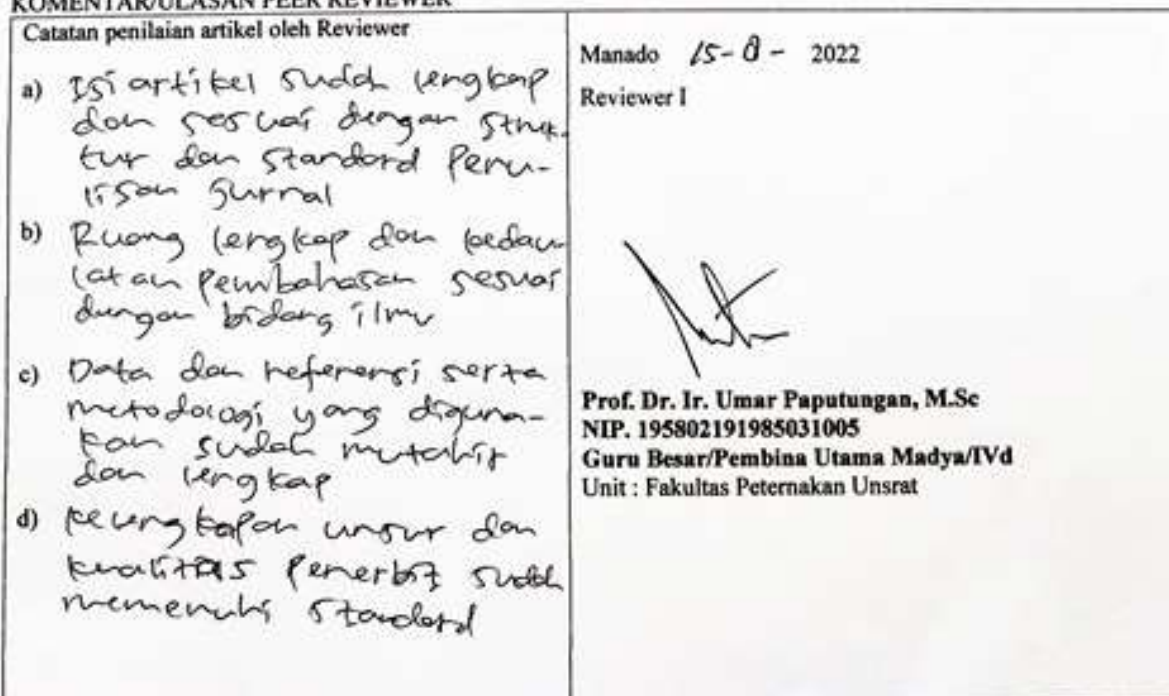 KOMENTAR/ULASAN PEER REVIEWER
Catatan penilaian artikel oleh Reviewer
a) Isi artikel sudah lengkap
dan sesuai dengan struk-
tur dan standard Penu-
lisan Jurnal
b) Ruang lengkap dan kedau-
latan Pembahasan sesuai
dengan bidang ilmu
c) Data dan referensi serta
metodologi yang diguna-
kan sudah mutahir
dan lengkap
d) Kelengkapan unsur dan
kualitas Penerbit sudah
memenuhi standard
Manado 15-8- 2022
Reviewer I
Prof. Dr. Ir. Umar Paputungan, M.Sc
NIP. 195802191985031005
Guru Besar/Pembina Utama Madya/IVd
Unit : Fakultas Peternakan Unsrat